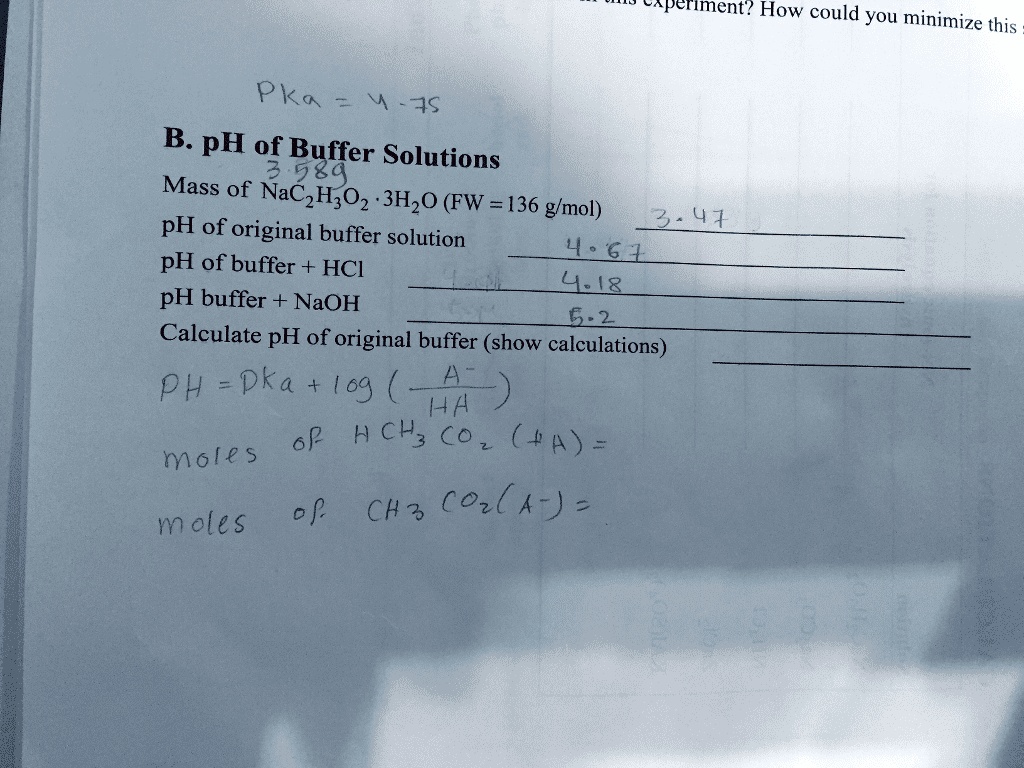 experiment? How could you minimize this
PKa = 4.75
B. pH of Buffer Solutions
3.58g
Mass of NaC₂H₃O₂ · 3H₂O (FW = 136 g/mol) 3.47
pH of original buffer solution 4.67
pH of buffer + HCl 4.18
pH buffer + NaOH 5.2
Calculate pH of original buffer (show calculations)
PH = PKa + log (A⁻/HA)
moles of HCH₃CO₂ (HA) =
moles of CH₃CO₂(A⁻) =